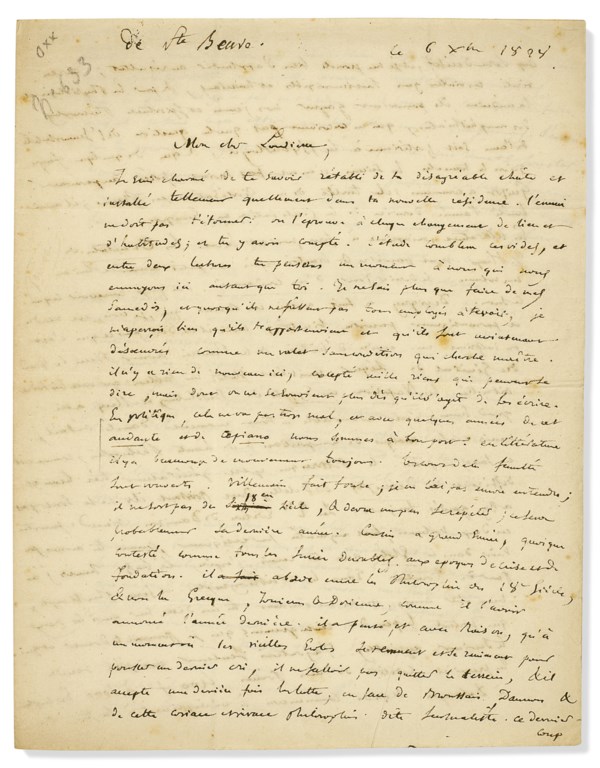 De Ste Beuve.
ce 6 Xbre 1828
n. 633
Mon cher Loudierre,
Je suis charmé de te savoir rétabli de ta désagréable chute et
installé tellement quellement dans ta nouvelle résidence. l'ennui
ne doit pas t'étonner: on l'éprouve à chaque changement de lieu et
d'habitudes; et tu y avois compté. l'étude comblera ces vides, et
entre deux lectures tu penseras un moment à nous qui nous
ennuyons ici autant que toi. Je ne sais plus que faire de mes
Samedis, et quoiqu'ils ne fussent pas tous employés à te voir, je
m'aperçois bien qu'ils t'appartenoient et qu'ils sont maintenant
désoeuvrés comme un valet sans condition qui cherche maître.
il n'y a rien de nouveau ici, excepté mille riens qui peuvent se
dire, mais dont on ne se souvient plus dès qu'il s'agit de les écrire.
En politique, cela ne va pas trop mal, et avec quelques années de cet
andante et de ce piano nous sommes à bon port: en littérature
il y a beaucoup de mouvement toujours. les cours de la faculté
sont ouverts. Villemain fait foule; je ne l'ai pas encore entendu;
il ne sort pas du 18em siècle, & devra un peu se répéter; ce sera
probablement sa dernière année. Cousin a grand succès, quoique
contesté comme tous les succès durables aux époques de crise et de
fondation. il aborde encore la Philosophie du 18e siècle,
& non la Grecque, Ionienne & Dorienne, comme il l'avoit
annoncé l'année dernière. il a pensé, et avec raison, qu'à
un moment où les vieilles Ecoles se remuent et se raniment pour
pousser un dernier cri, il ne falloit pas quitter le terrein, & il
accepte une dernière fois la lutte, en face de Broussais, Daunou &
de cette coriace et vivace Philosophie dite Sensualiste. ce dernier
coup